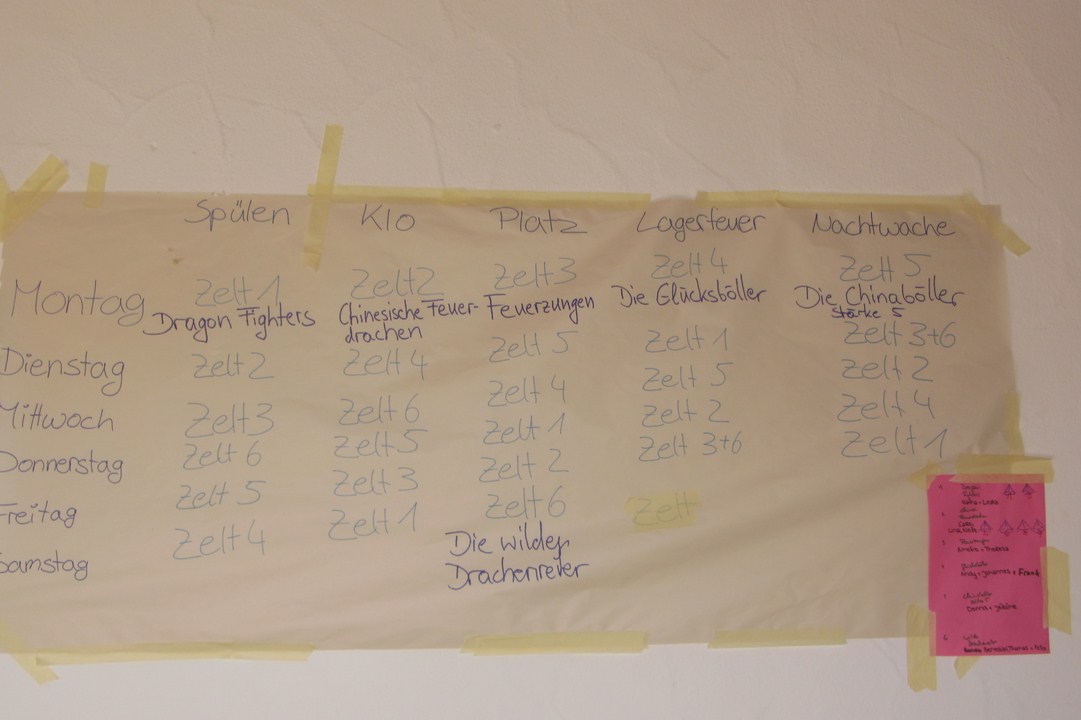 Spülen Klo Platz Lagerfeuer Nachtwache
Montag Zelt 1 Zelt 2 Zelt 3 Zelt 4 Zelt 5
Dragon Fighters Chinesische Feuer- Feuerzungen Die Glücksböller Die Chinaböller
drachen Stärke 5
Dienstag Zelt 2 Zelt 4 Zelt 5 Zelt 1 Zelt 3+6
Mittwoch Zelt 3 Zelt 6 Zelt 4 Zelt 5 Zelt 2
Donnerstag Zelt 6 Zelt 5 Zelt 1 Zelt 2 Zelt 4
Freitag Zelt 5 Zelt 3 Zelt 2 Zelt 3+6 Zelt 1
Samstag Zelt 4 Zelt 1 Zelt 6 Zelt
Die wilden
Drachenreiter